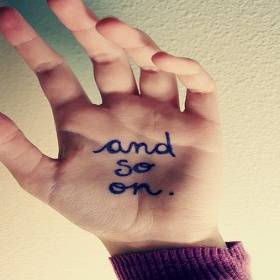 and
so
on.